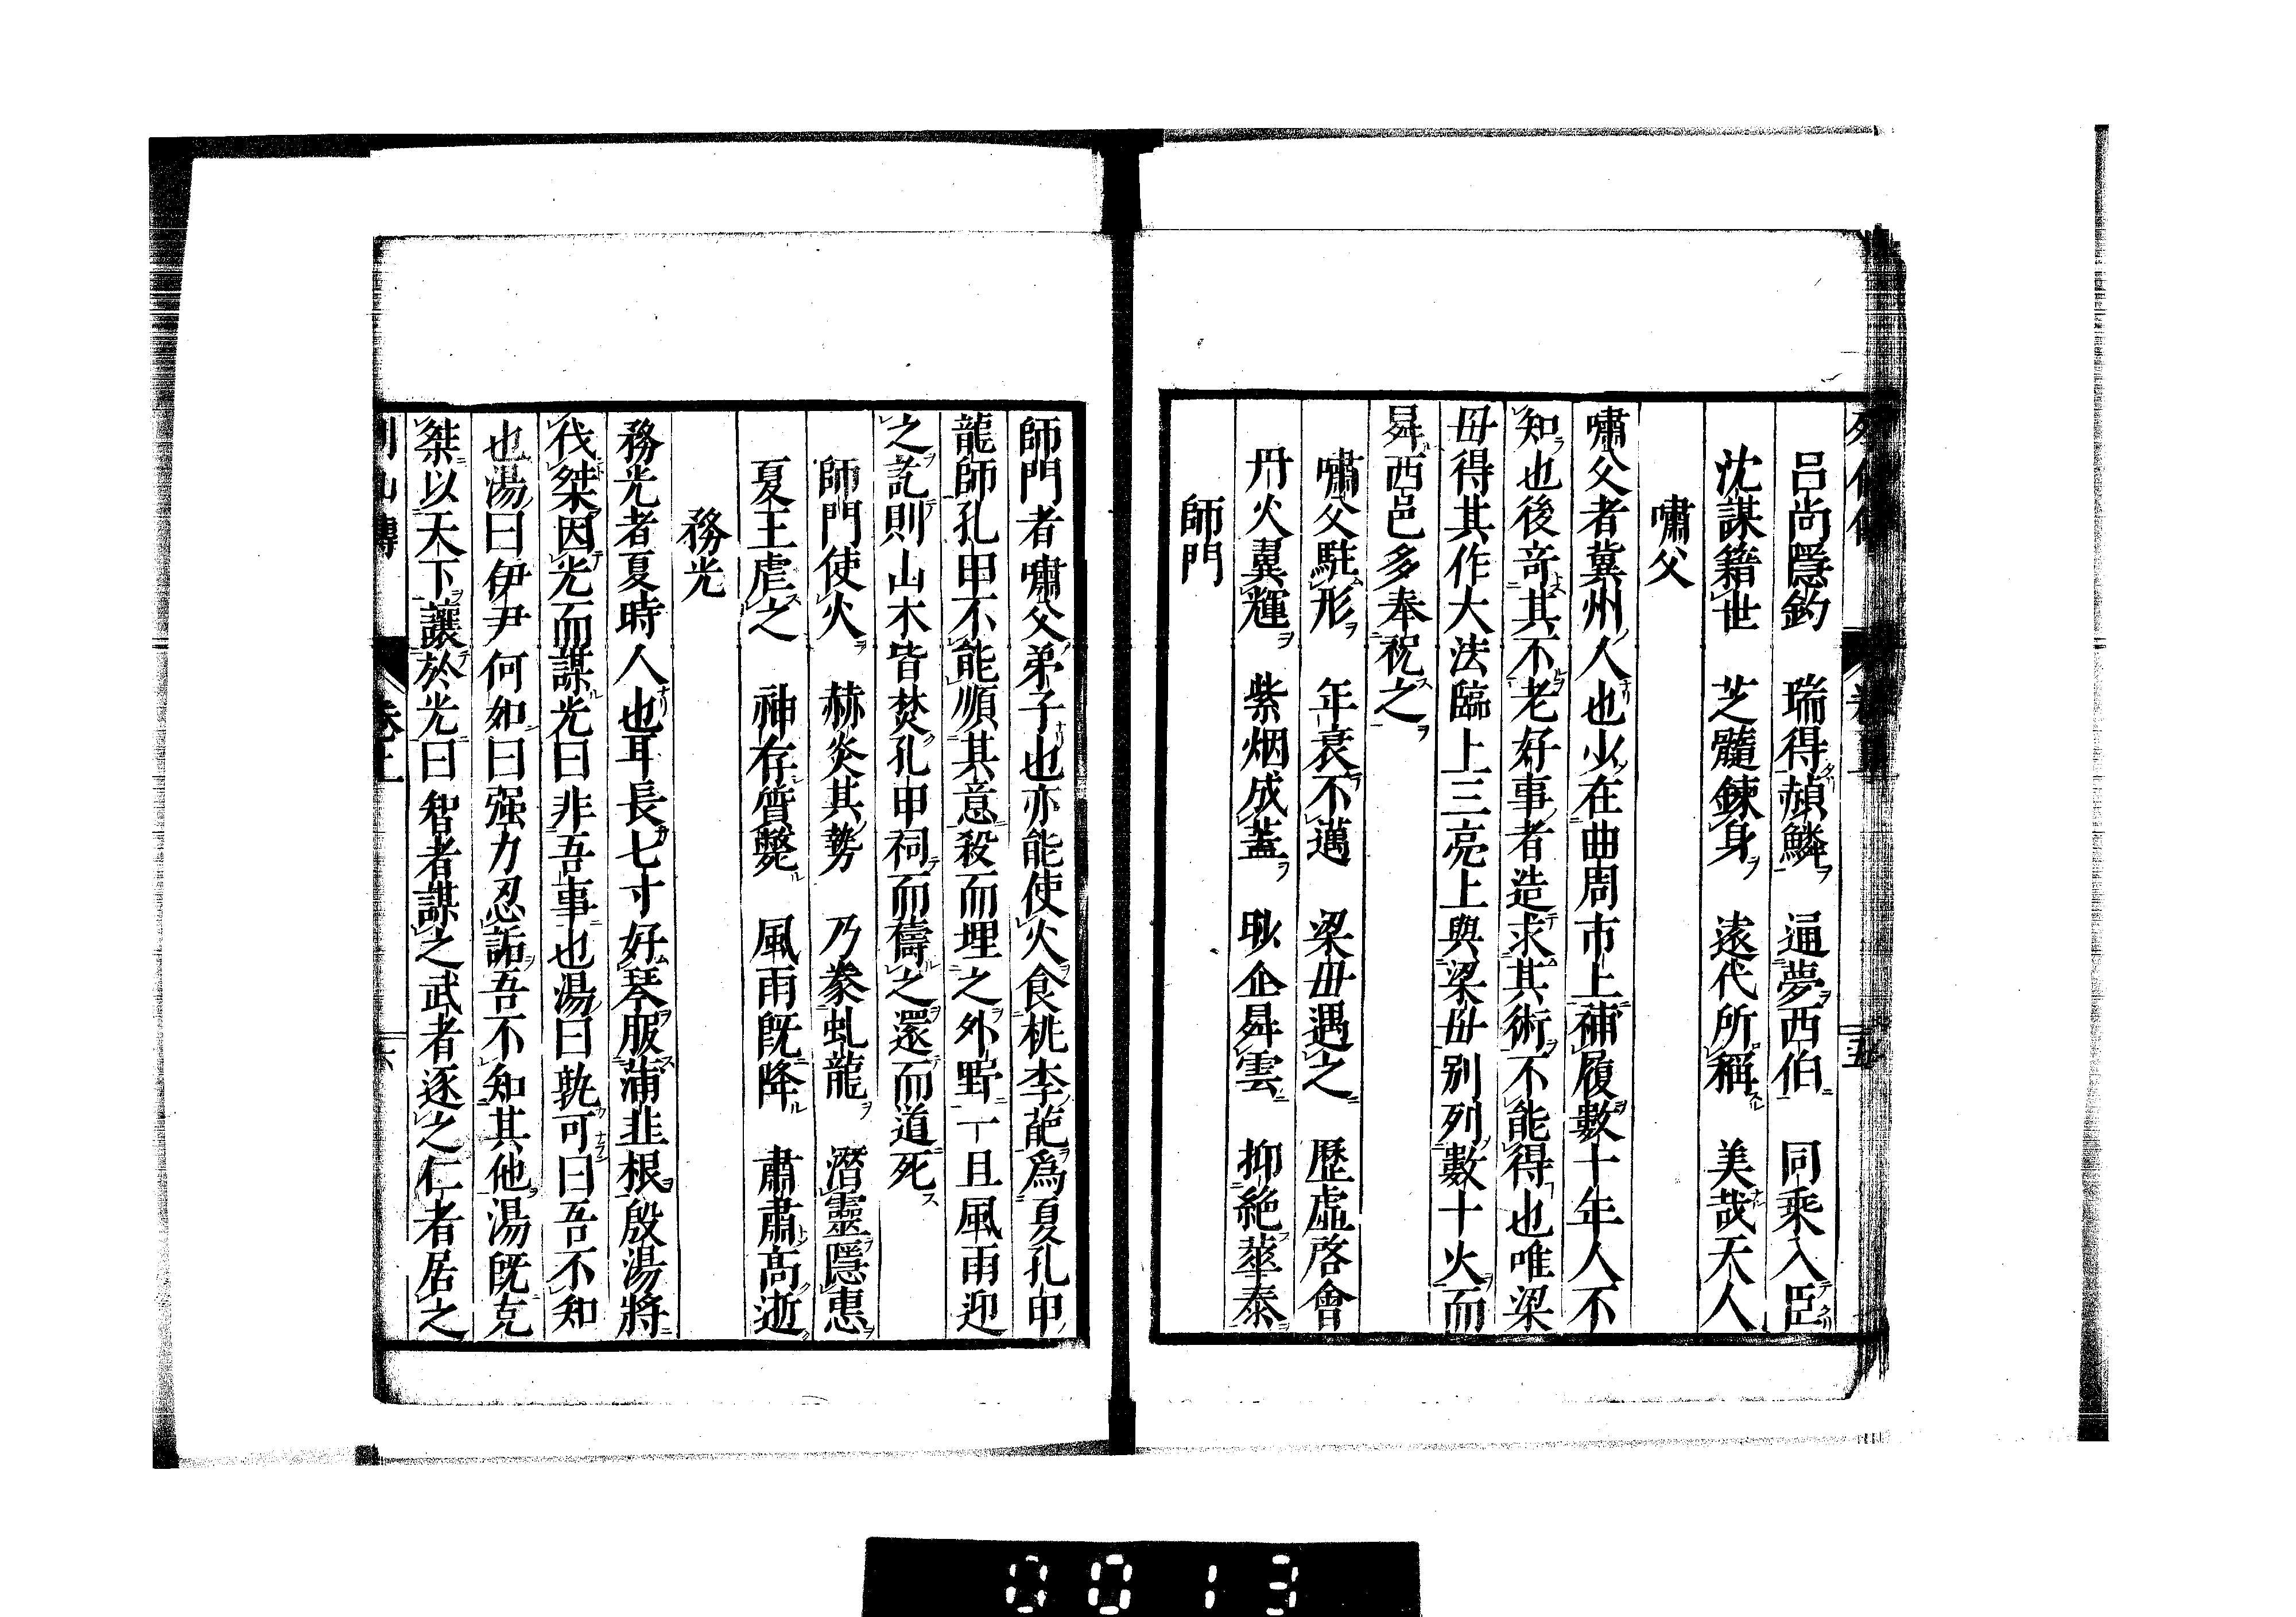 呂尚隱釣　瑞得赬鱗　逼夢西伯　同乘入臣
沈謀籍世　芝髓鍊身　遠代所稱　美哉天人
嘯父
嘯父者冀州人也少在曲周市上補履數十年人不
知也後竒其不老好事者造求其術不能得也唯梁
毋得其作大法臨上三亮上與梁毋别列數十火而
曻西邑多奉祝之
嘯父駐形　年衰不邁　梁毋遇之　歷虛啓會
丹火翼輝　紫烟成蓋　耿企曻雲　抑絶華泰
師門
師門者嘯父弟子也亦能使火食桃李葩爲夏孔甲
龍師孔甲不能順其意殺而埋之外野一旦風雨迎
之訖則山木皆焚孔甲祠而禱之還而道死
師門使火　赫炎其勢　乃豢虬龍　潛靈隱惠
夏王虐之　神存質斃　風雨旣降　肅肅高逝
務光
務光者夏時人也耳長七寸好琴服蒲韭根殷湯將
伐桀因光而謀光曰非吾事也湯曰孰可曰吾不知
也湯曰伊尹何如曰强力忍詬吾不知其他湯旣克
桀以天下讓於光曰智者謀之武者遂之仁者居之
卷上
0013